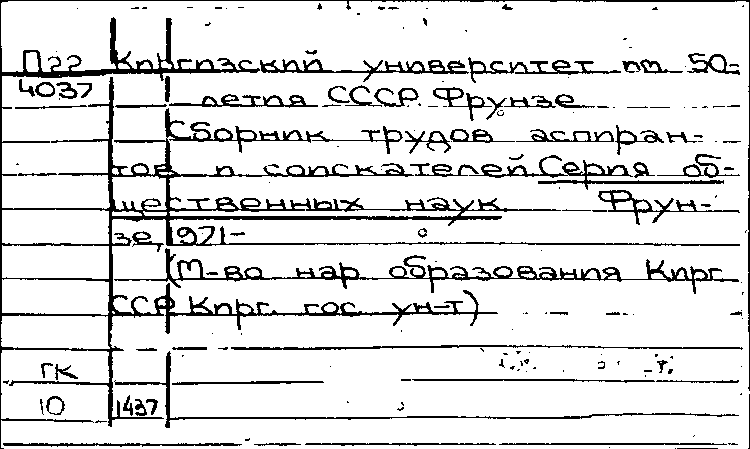 П22 Киргизский университет им. 50-
4037 летия СССР. Фрунзе
Сборник трудов аспиран-
тов и соискателей. Серия об-
щественных наук. Фрун-
зе, 1971-
(М-во нар. образования Кирг.
ССР. Кирг. гос. ун-т)
ГК
10 1437